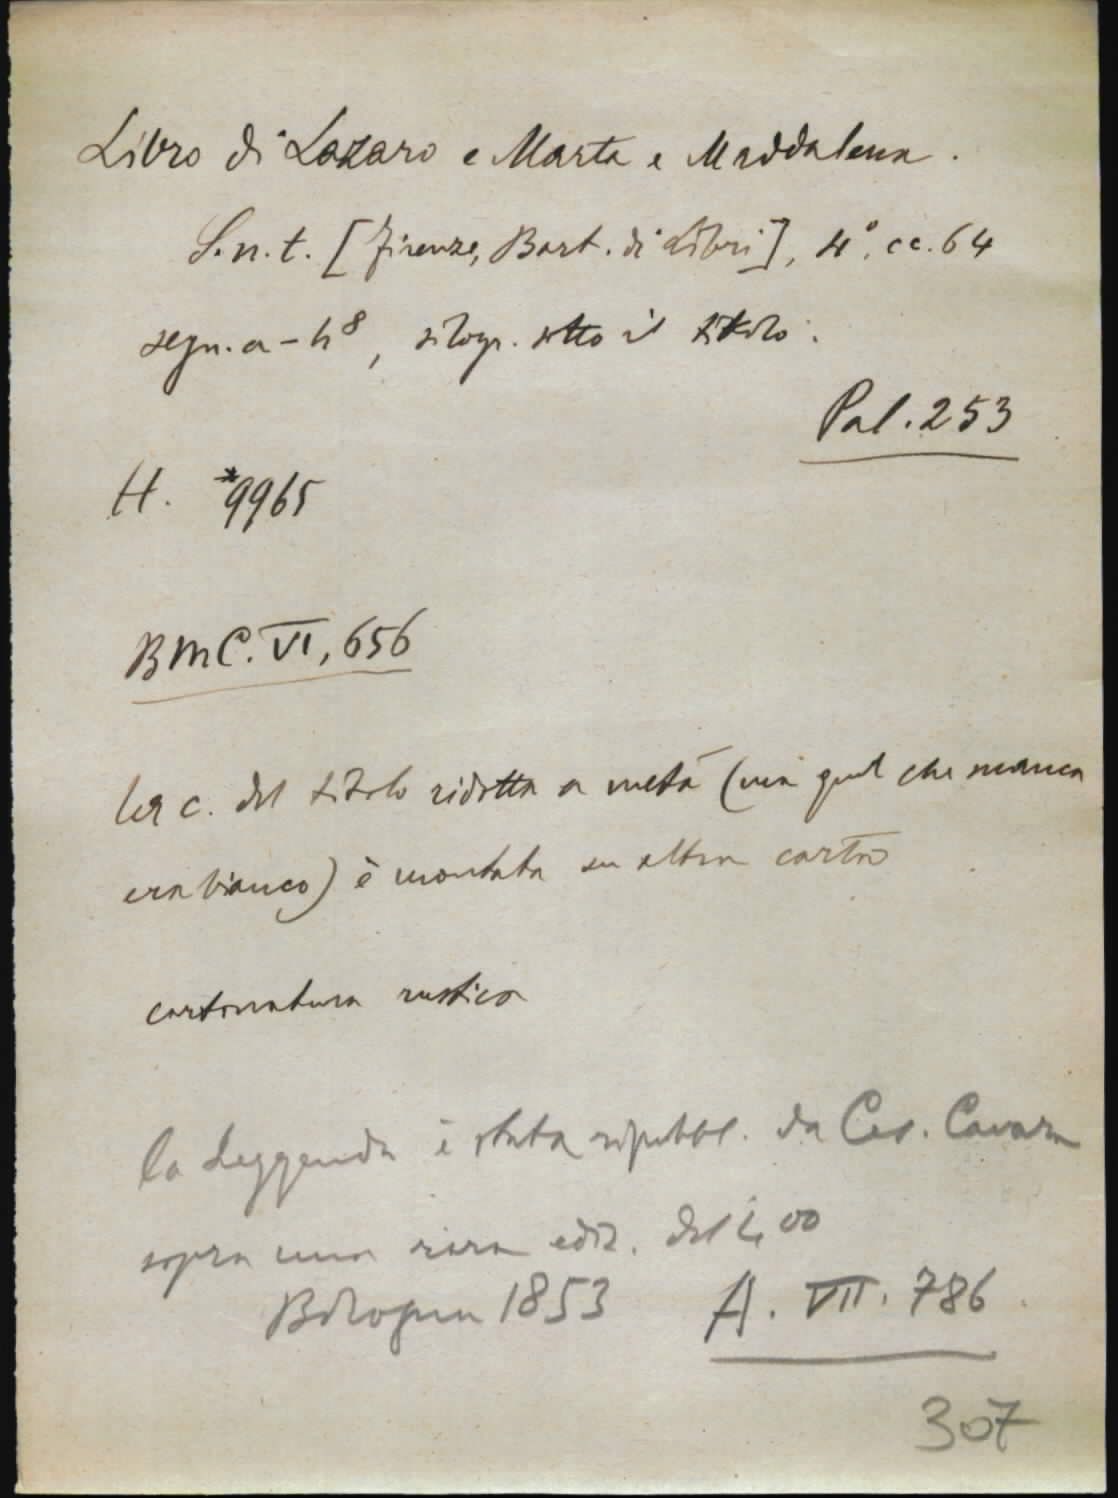 Libro di Lazaro e Marta e Maddalena.
S.n.t. [Firenze, Bart. di Libri], 4°, cc. 64
segn. a-h⁸, silogr. sotto il titolo.
Pal. 253
H. *9965
BMC. VI, 656
la c. del titolo ridotta a metà (ma quel che manca
era bianco) è montata su altra carta
cartonatura rustica
la Leggenda è stata ripubbl. da Ces. Cavara
sopra una rara ediz. del 400
Bologna 1853 A. VII. 786
307